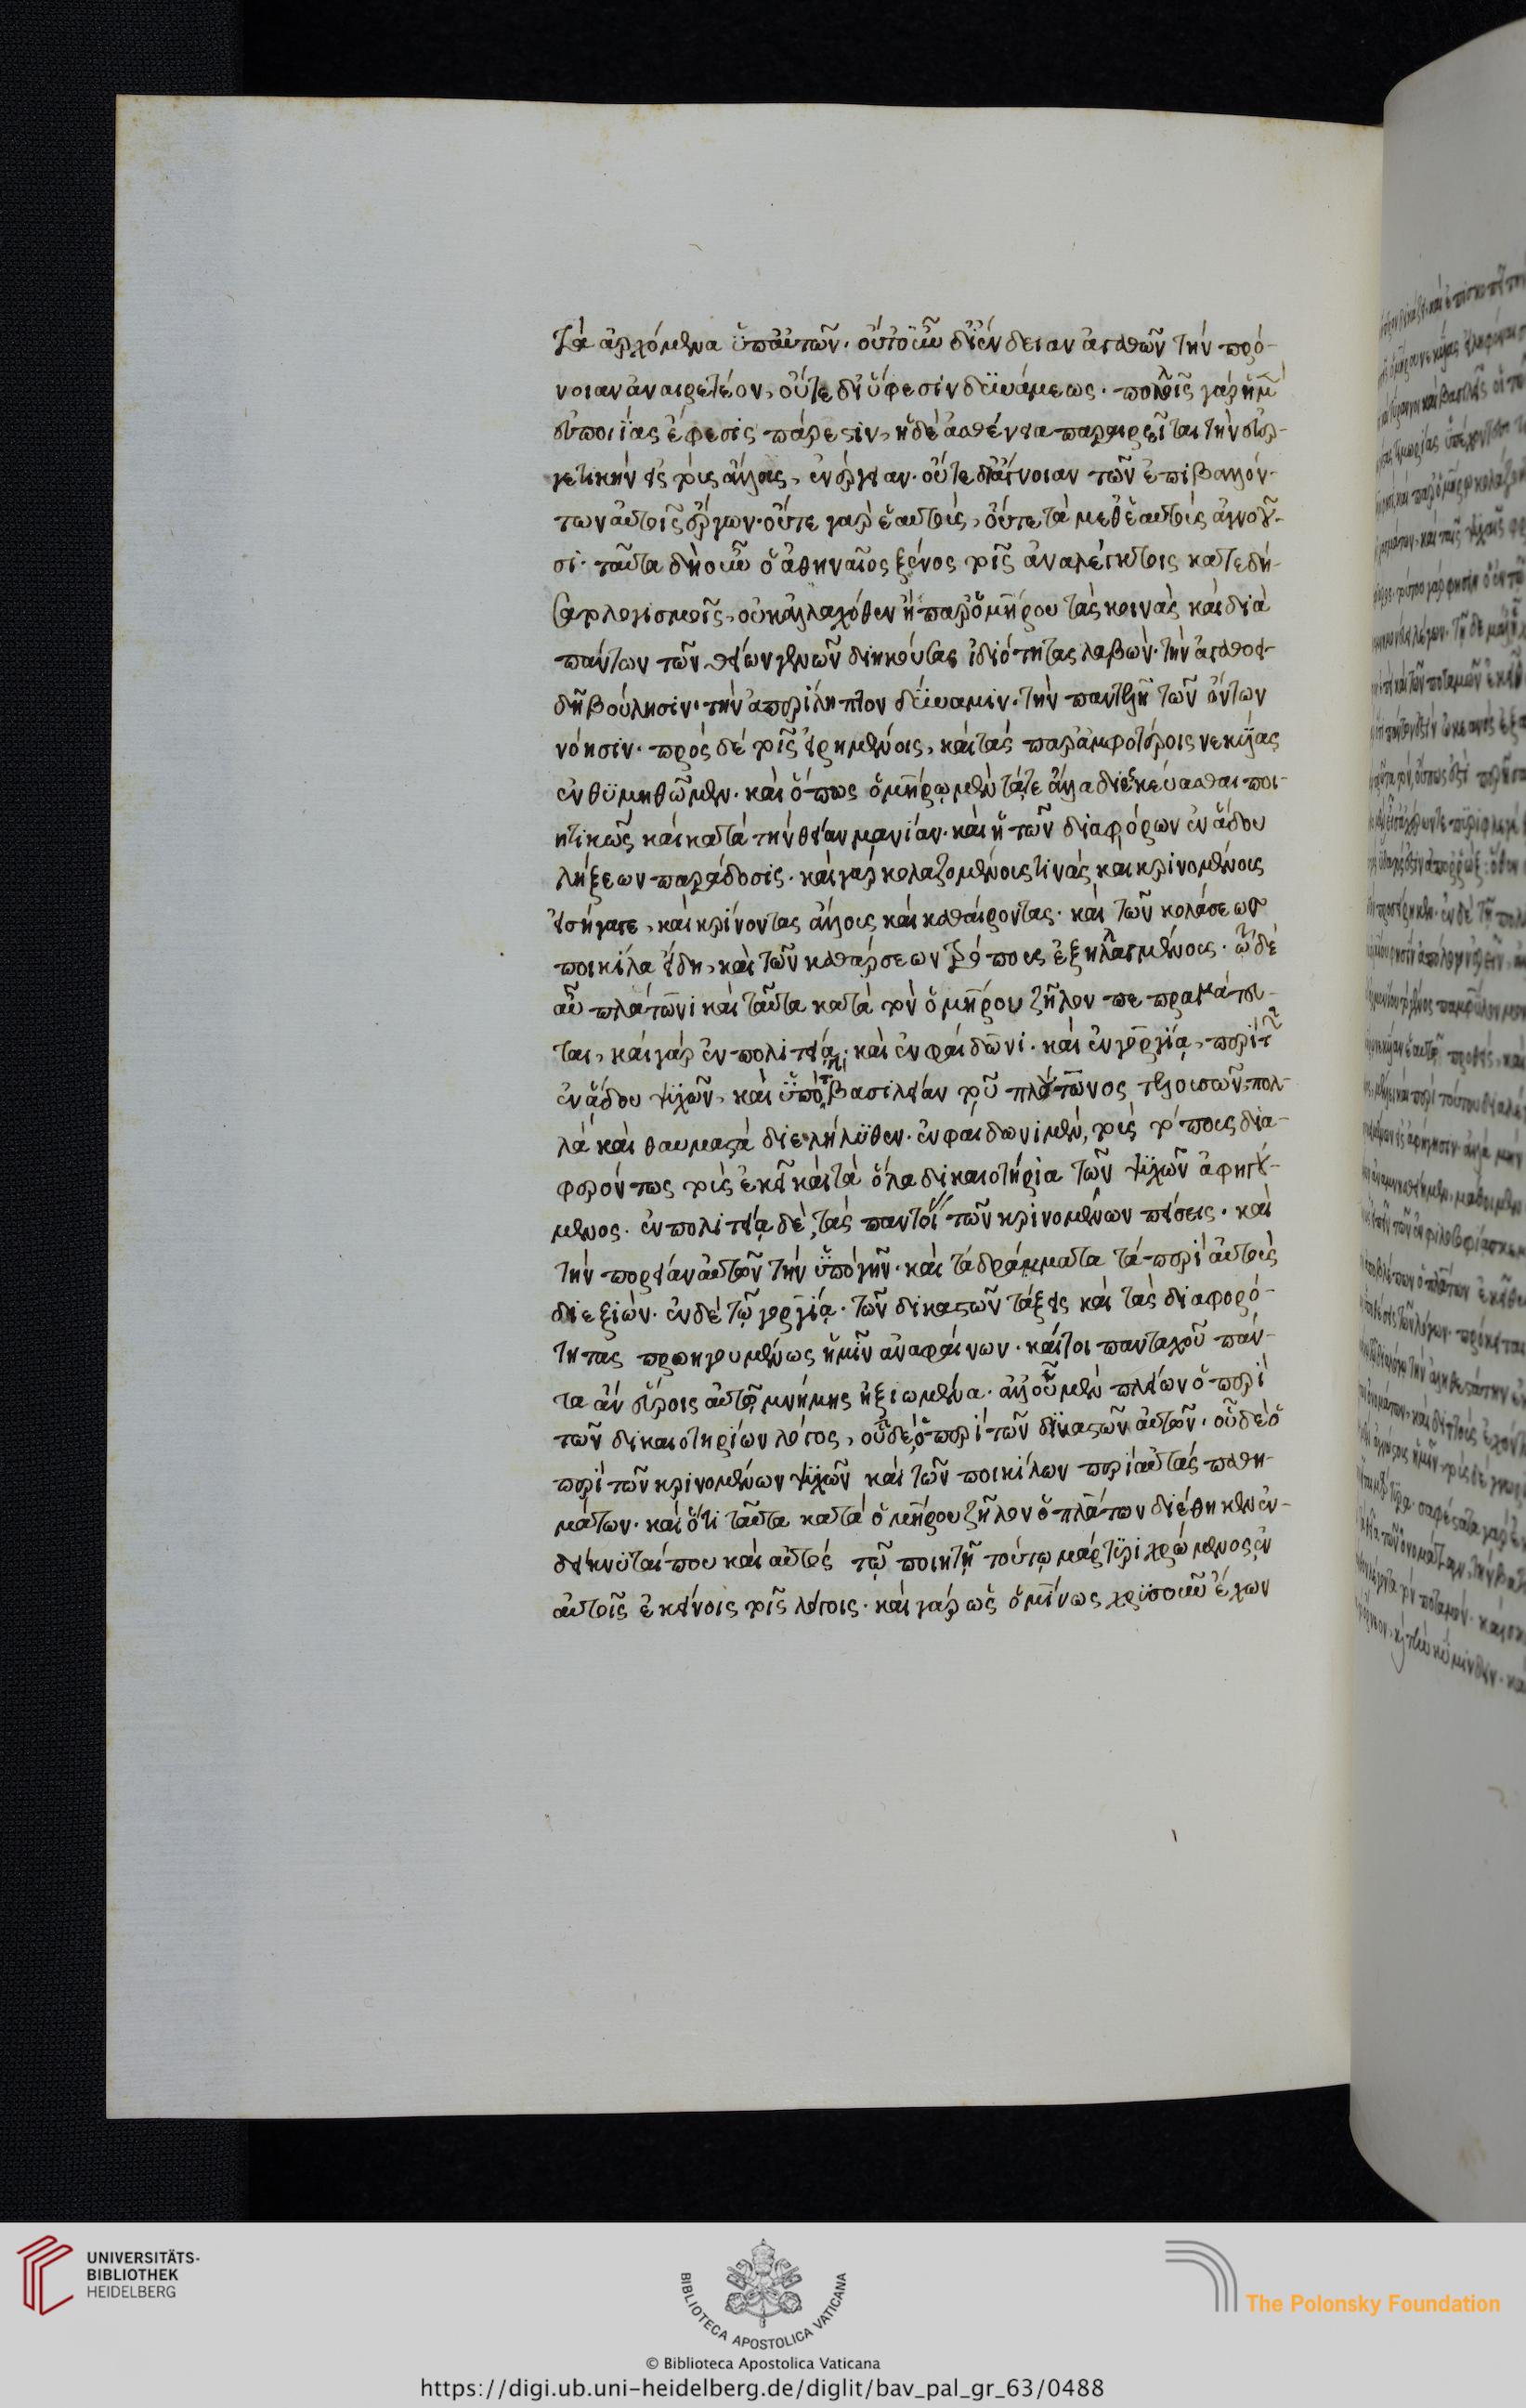 τὰ ἀρχόμενα ὑπ' αὐτῶν. οὔτ' οὖν δι' ἔνδειαν ἀγαθῶν τὴν πρό-
νοιαν ἀναιρετέον, οὔτε δι' ὕφεσιν δυνάμεως. πολλοῖς γὰρ ἡ μὲν
εὐποιΐας ἔφεσις πάρεστιν, ἡ δὲ ἀσθένεια παραιρεῖται τὴν εὐερ-
γετικὴν εἰς τοὺς ἄλλους, ἐνέργειαν. οὔτε δι' ἄγνοιαν τῶν ἐπιβαλλόν-
των αὐτοῖς ἔργων. οὔτε γὰρ ἑαυτοὺς, οὔτε τὰ μεθ' ἑαυτοὺς ἀγνοοῦ-
σι. ταῦτα δὴ οὖν ὁ ἀθηναῖος ξένος τοῖς ἀναλέγκτοις κατεδή-
σατο λογισμοῖς, οὐκ ἀλλαχόθεν ἢ παρ' ὁμήρου τὰς κοινὰς καὶ διὰ
πάντων τῶν θείων γενῶν διηκούσας ἰδιότητας λαβών. τὴν ἀγαθοει-
δῆ βούλησιν. τὴν ἀπερίληπτον δύναμιν. τὴν παντελῆ τῶν ὄντων
νόησιν. πρὸς δὲ τοῖς εἰρημένοις, καὶ τὰς παρ' ἀμφοτέροις νεκυίας
ἐνθυμηθῶμεν. καὶ ὅπως ὁμήρῳ μὲν τά τε ἄλλα διεσκεύασθαι ποι-
ητικῶς καὶ κατὰ τὴν θείαν μανίαν. καὶ ἡ τῶν διαφόρων ἐν ἅδου
λήξεων παράδοσις. καὶ γὰρ κολαζομένους τινὰς καὶ κρινομένους
εἰσήγαγε, καὶ κρίνοντας ἄλλους καὶ καθαίροντας. καὶ τῶν κολάσεων
ποικίλα εἴδη, καὶ τῶν καθάρσεων τρόπους ἐξηλλαγμένους. τῷ δὲ
αὖ πλάτωνι καὶ ταῦτα κατὰ τὸν ὁμήρου ζῆλον πεπραγμάτευ-
ται, καὶ γὰρ ἐν πολιτείᾳ. καὶ ἐν φαίδωνι. καὶ ἐν γοργίᾳ, περὶ τῶν
ἐν ἅδου ψυχῶν, καὶ ὑπὸ τὴν βασιλείαν τοῦ πλούτωνος τελουσῶν, πολ-
λὰ καὶ θαυμαστὰ διελήλυθεν. ἐν φαίδωνι μὲν, τοὺς τόπους δια-
φερόντως τοὺς ἐκεῖ καὶ τὰ ὅλα δικαιωτήρια τῶν ψυχῶν ἀφηγού-
μενος. ἐν πολιτείᾳ δὲ, τὰς παντοίας τῶν κρινομένων τίσεις. καὶ
τὴν πορείαν αὐτῶν τὴν ὑπὸ γῆν. καὶ τὰ δράμματα τὰ περὶ αὐτοὺς
διεξιών. ἐν δὲ τῷ γοργίᾳ. τῶν δικαστῶν τάξεις καὶ τὰς διαφορό-
τητας προηγουμένως ἡμῖν ἀναφαίνων. καίτοι πανταχοῦ πάν-
τα ἂν εὕροις αὐτῷ μνήμης ἠξιωμένα. ἀλλ' οὗ μὲν πλείων ὁ περὶ
τῶν δικαιοτηρίων λόγος, οὗ δὲ, ὁ περὶ τῶν δικαστῶν αὐτῶν. οὗ δὲ ὁ
περὶ τῶν κρινομένων ψυχῶν καὶ τῶν ποικίλων περὶ αὐτὰς παθη-
μάτων. καὶ ὅτι ταῦτα κατὰ ὁμήρου ζῆλον ὁ πλάτων διέθηκεν ἐν-
δείκνυταί που καὶ αὐτὸς τῷ ποιητῇ τούτῳ μάρτυρι χρώμενος ἐν
αὐτοῖς ἐκείνοις τοῖς λόγοις. καὶ γὰρ ὡς ὁ μίνως χρυσοῦν ἔχων
UNIVERSITÄTS-
BIBLIOTHEK
HEIDELBERG
BIBLIOTECA APOSTOLICA VATICANA
The Polonsky Foundation
© Biblioteca Apostolica Vaticana
https://digi.ub.uni-heidelberg.de/diglit/bav_pal_gr_63/0488